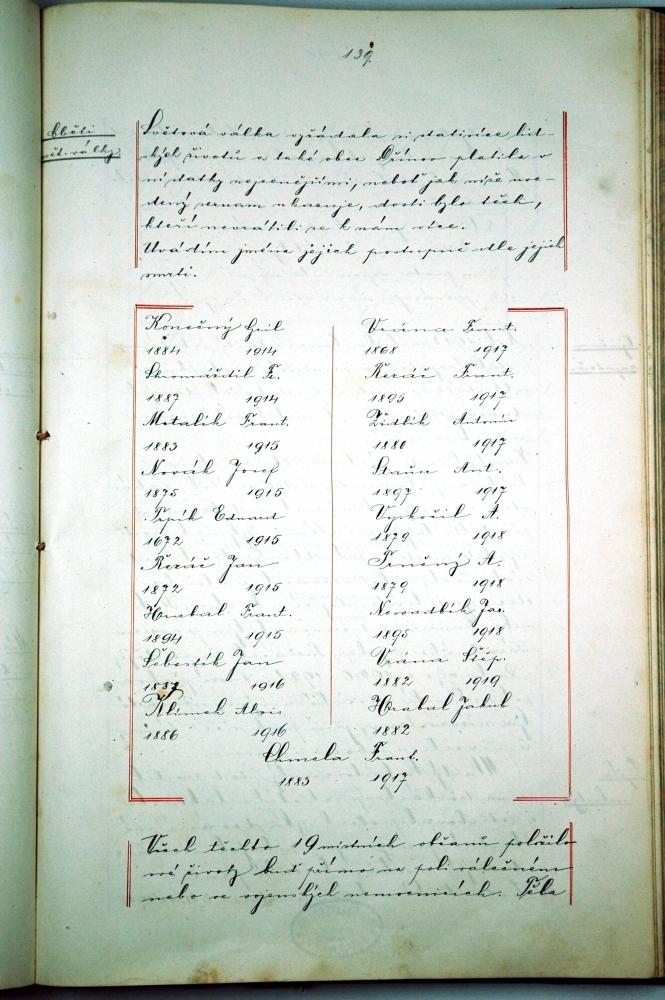 139.
Oběti
svět. války.
Světová válka vyžádala si statisíce lid-
ských životů a také obec Dřínov platila v
ní statky nejcennějšími, neboť jak níže uve-
dený seznam ukazuje, dosti bylo těch,
kteří nevrátili se k nám více.
Uvádím jména jejich postupně dle jejich
smrti.
Konečný Cyril
1884 1914
Skromáždil Fr.
1887 1914
Motalík Frant.
1883 1915
Novák Josef
1875 1915
Trpík Eduard
1672 1915
Řezáč Jan
1872 1915
Hrabal Frant.
1894 1915
Šebestík Jan
1887 1916
Klimek Alois
1886 1916
Vrána Frant.
1868 1917
Řezáč Frant.
1895 1917
Židlík Antonín
1880 1917
Ant.
1897 1917
Vyskočil A.
1879 1918
A.
1879 1918
Nevadlík Jos.
1895 1918
Vrána Štěp.
1882 1919
Hrabal Jakub
1882
Chmela Frant.
1883 1917
Všech těchto 19 místních občanů položilo
své životy buď přímo na poli válečném
nebo ve vojenských nemocnicích. Těla